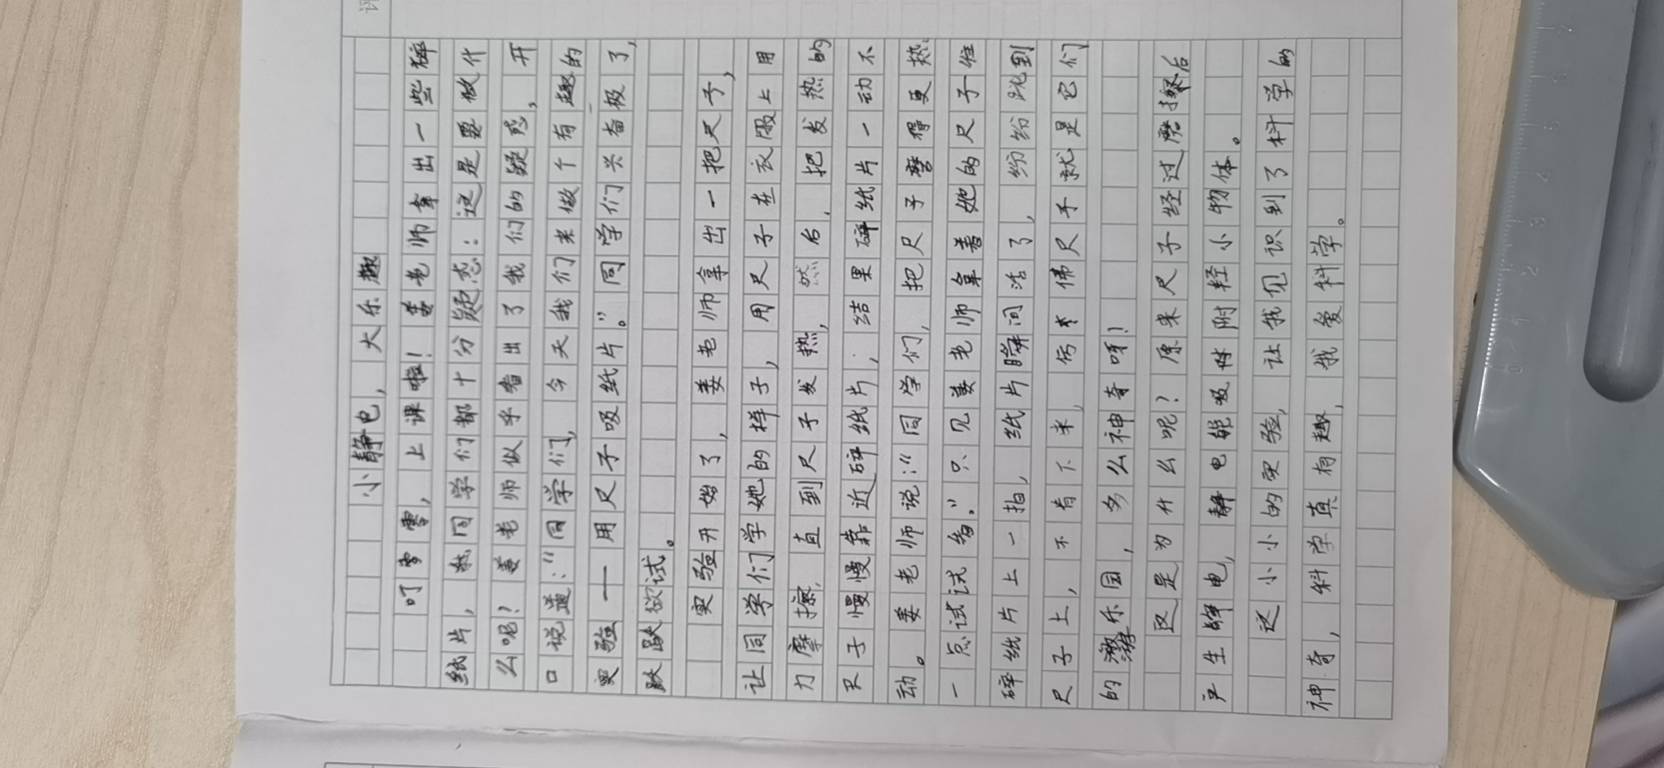 小静电，大乐趣
叮零零，上课啦！姜老师拿出一些碎
纸片，然同学们都十分疑惑：这是要做什
么呢？姜老师似乎看出了我们的疑惑，开
口说道：“同学们，今天我们来做个有趣的
实验——用尺子吸纸片。”同学们兴奋极了，
跃跃欲试。
实验开始了，姜老师拿出一把尺子，
让同学们学她的样子，用尺子在衣服上用
力摩擦，直到尺子发热，然后，把发热的
尺子慢慢靠近碎纸片，结果碎纸片一动不
动。姜老师说：“同学们，把尺子磨得更热
一点试试看。”只见姜老师拿着她的尺子往
碎纸片上一拍，纸片瞬间活了，纷纷跳到
尺子上，不肯下来，仿佛尺子就是它们
的游乐园，多么神奇呀！
这是为什么呢？原来尺子经过磨擦后
产生静电，静电能吸附轻小物体。
这小小的实验，让我见识到了科学的
神奇，科学真有趣，我爱科学。